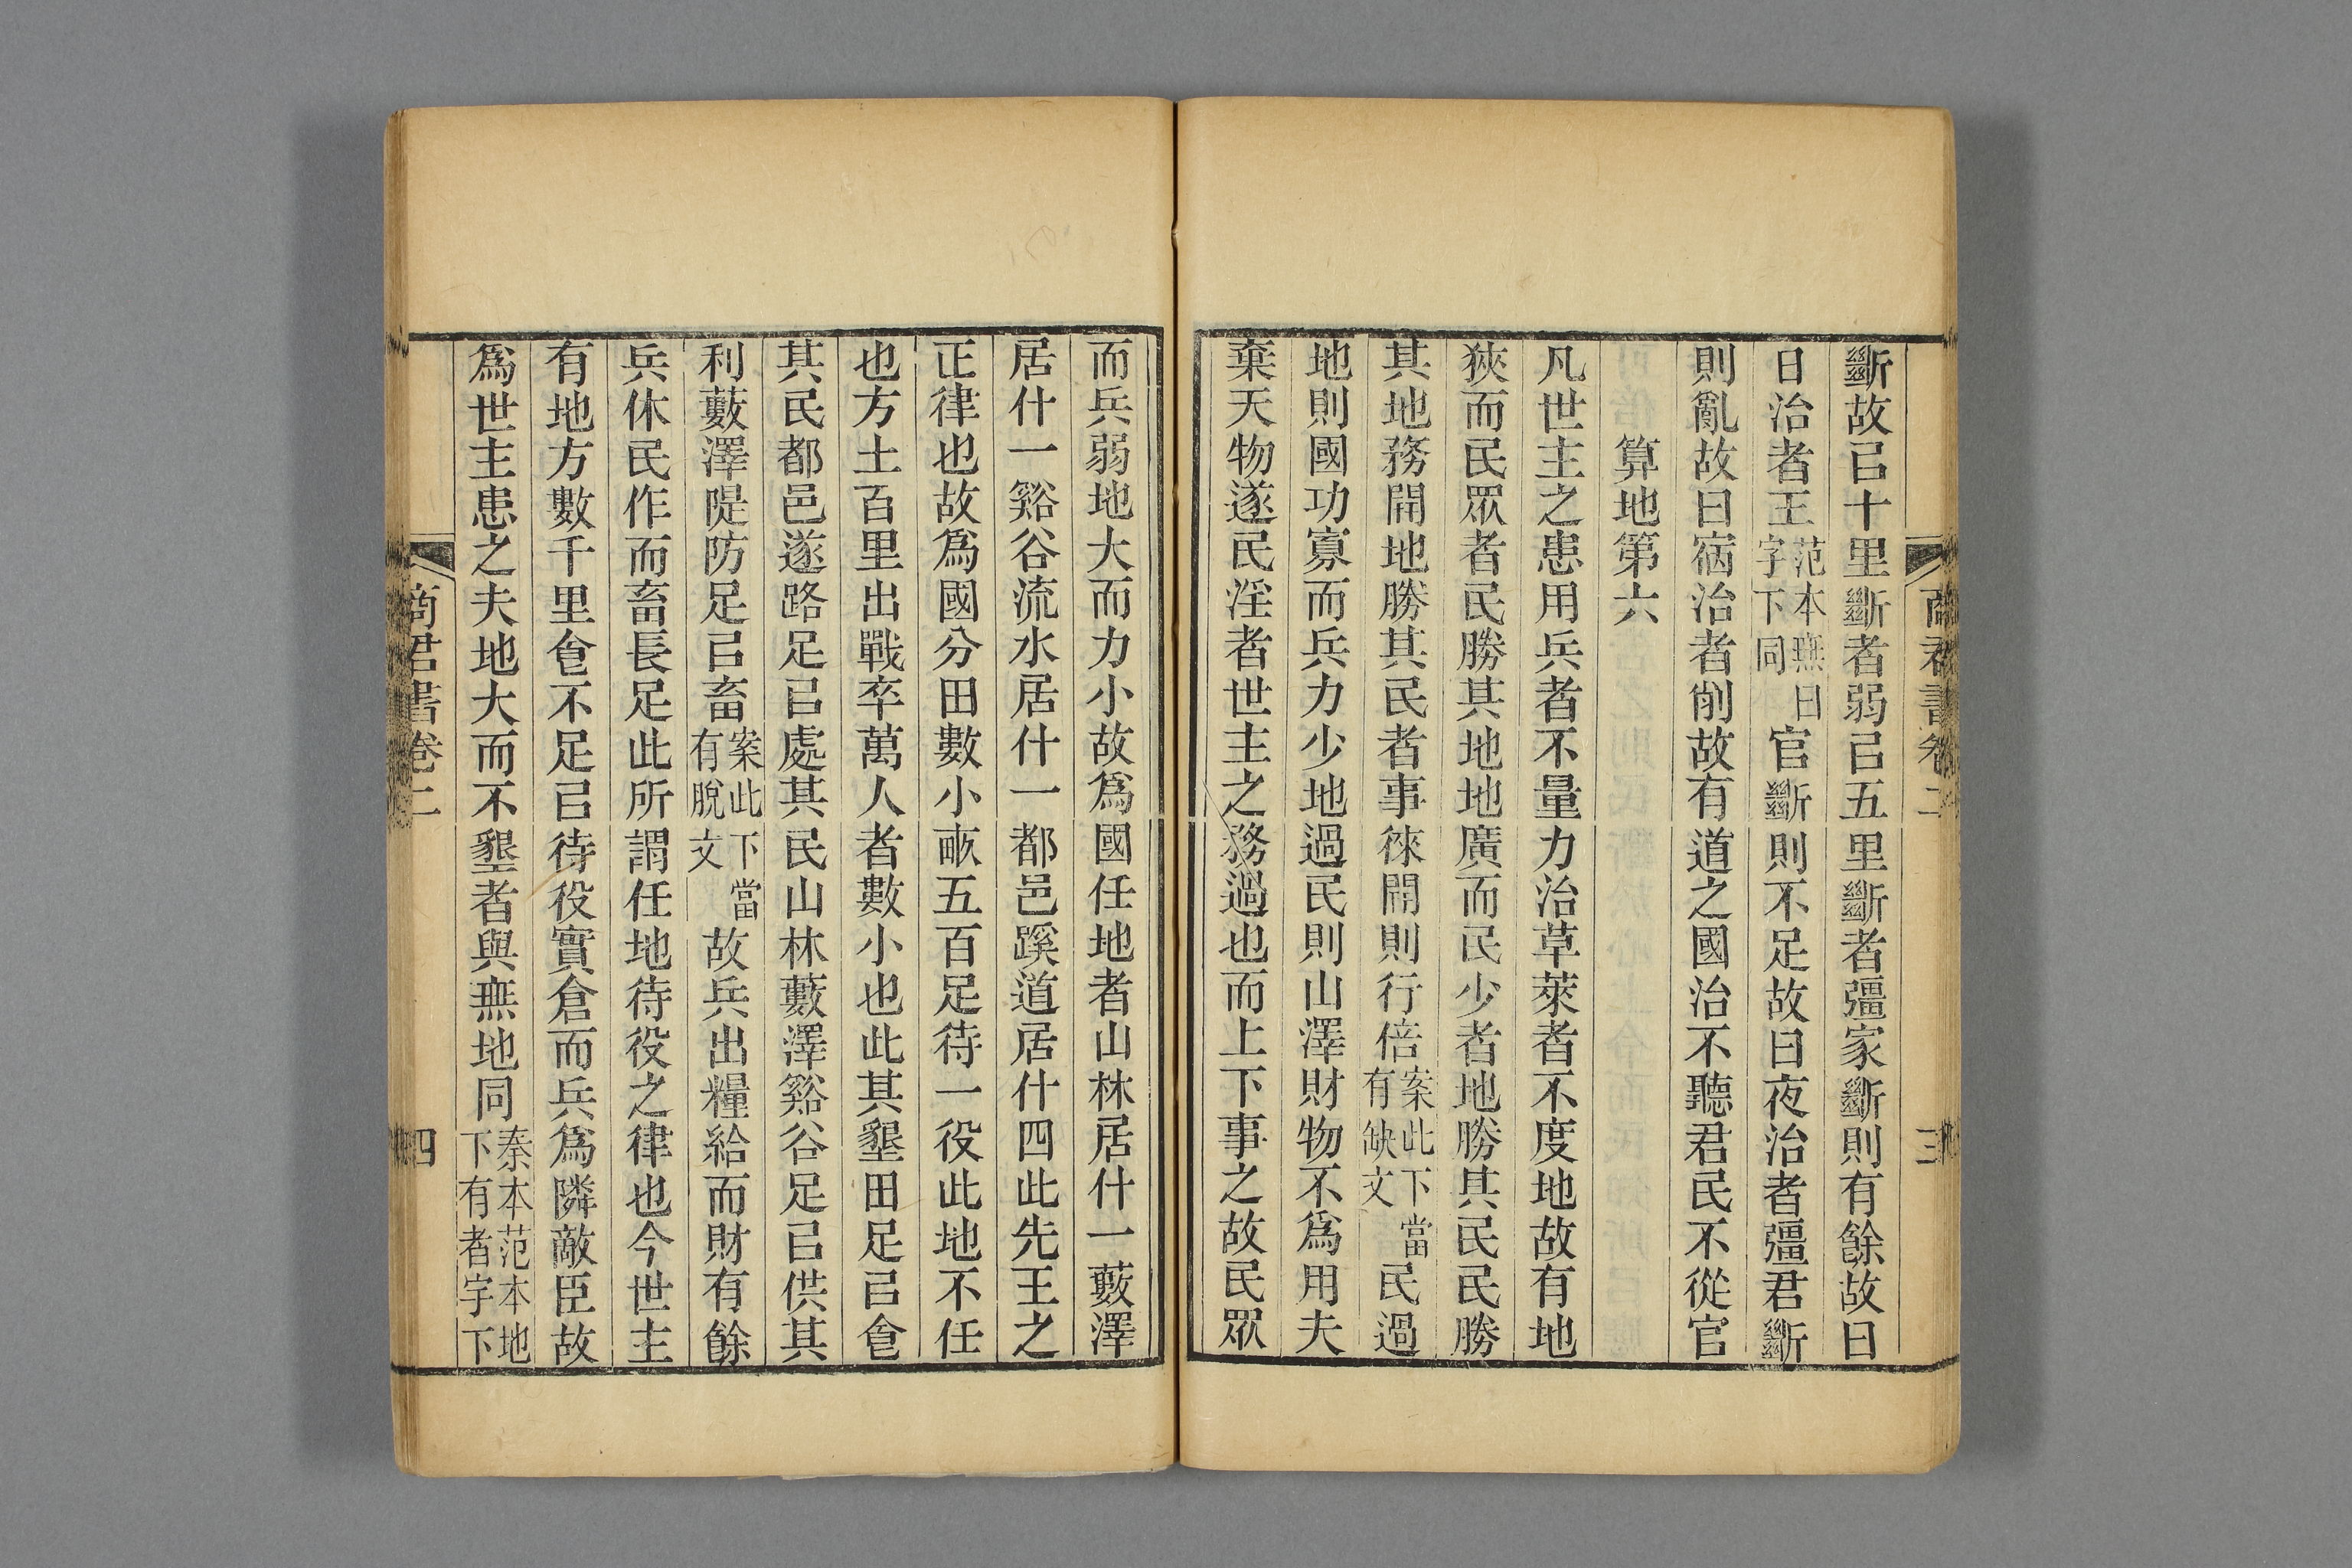 商君書卷二 三
斷故㠯十里斷者弱㠯五里斷者彊家斷則有餘故曰
日治者王范本無日字下同官斷則不足故曰夜治者彊君斷
則亂故曰宿治者削故有道之國治不聽君民不從官
算地第六
凡世主之患用兵者不量力治草萊者不度地故有地
狹而民眾者民勝其地地廣而民少者地勝其民民勝
其地務開地勝其民者事徠開則行倍案此下當有缺文民過
地則國功寡而兵力少地過民則山澤財物不爲用夫
棄天物遂民淫者世主之務過也而上下事之故民眾
而兵弱地大而力小故爲國任地者山林居什一藪澤
居什一谿谷流水居什一都邑蹊道居什四此先王之
正律也故爲國分田數小畝五百足待一役此地不任
也方土百里出戰卒萬人者數小也此其墾田足㠯食
其民都邑遂路足㠯處其民山林藪澤谿谷足㠯供其
利藪澤隄防足㠯畜案此下當有脫文故兵出糧給而財有餘
兵休民作而畜長足此所謂任地待役之律也今世主
有地方數千里食不足㠯待役實倉而兵爲隣敵臣故
爲世主患之夫地大而不墾者與無地同秦本范本地下有者字下
商君書卷二 四